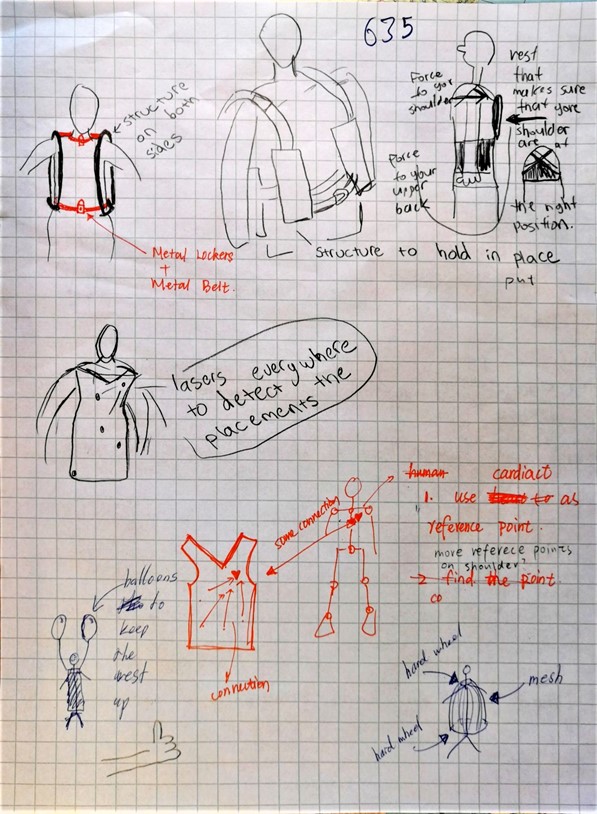 635
structure
on both
sides
Metal Lockers
+
Metal Belt.
Force
to your
shoulder
Force
to your
upper
back
vest
that
makes sure
that your
shoulder
are at
the right
position.
structure to hold in place
put
lasers everywhere
to detect the
placements
human cardiact
1. use as
reference point.
more referece points
on shoulder?
2 find the point.
co
some connection
connection
balloons
to
keep
the
vest
up
hard wheel
mesh
hard wheel